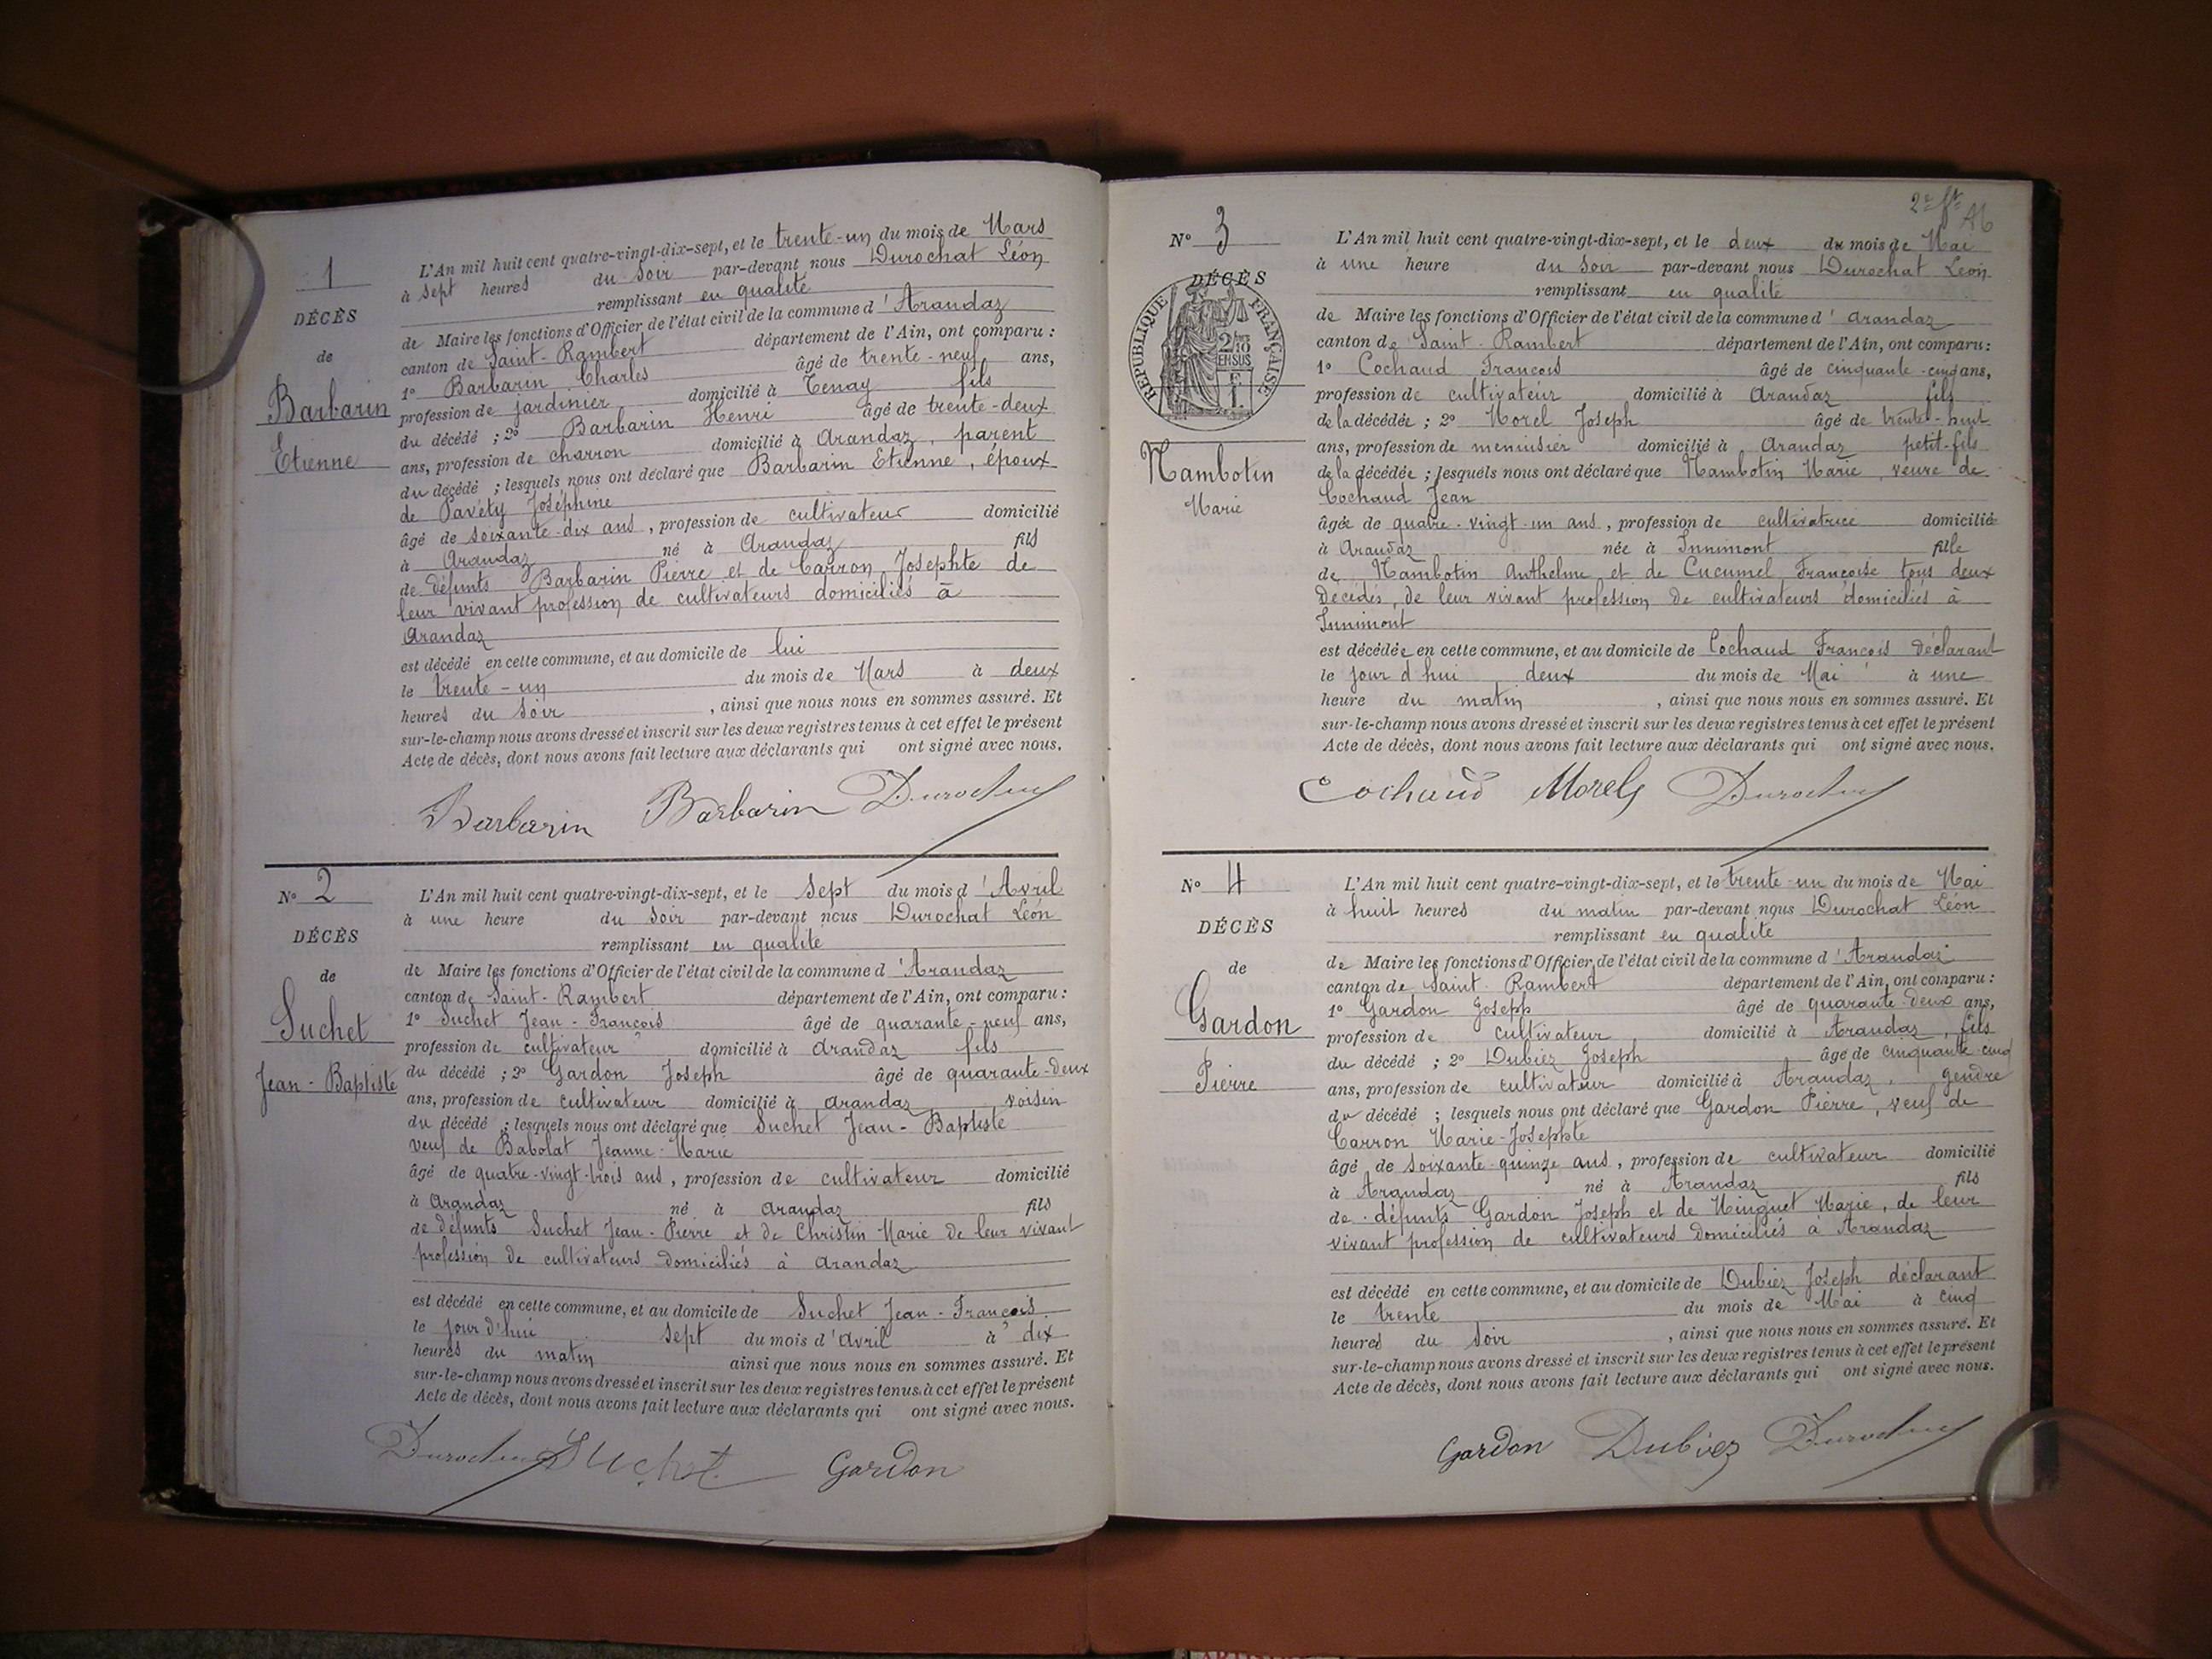 1
DÉCÈS
de
Barbarin
Etienne
L'An mil huit cent quatre-vingt-dix-sept, et le trente-un du mois de Mars
à sept heures du soir par-devant nous Durochat Léon
remplissant en qualité
de Maire les fonctions d'Officier de l'état civil de la commune d'Arandaz
canton de Saint-Rambert département de l'Ain, ont comparu :
1º Barbarin Charles âgé de trente-neuf ans,
profession de jardinier domicilié à Tenay fils
du décédé ; 2º Barbarin Henri âgé de trente-deux
ans, profession de charron domicilié à Arandaz, parent
du décédé ; lesquels nous ont déclaré que Barbarin Etienne, époux
de Pavéty Joséphine
âgé de soixante-dix ans, profession de cultivateur domicilié
à Arandaz né à Arandaz fils
de défunts Barbarin Pierre et de Carron Josephte de
leur vivant profession de cultivateurs domiciliés à
Arandaz
est décédé en cette commune, et au domicile de lui
le trente-un du mois de Mars à deux
heures du soir, ainsi que nous nous en sommes assuré. Et
sur-le-champ nous avons dressé et inscrit sur les deux registres tenus à cet effet le présent
Acte de décès, dont nous avons fait lecture aux déclarants qui ont signé avec nous.
Barbarin Barbarin Durochat
Nº 2
DÉCÈS
de
Suchet
Jean-Baptiste
L'An mil huit cent quatre-vingt-dix-sept, et le sept du mois d'Avril
à une heure du soir par-devant nous Durochat Léon
remplissant en qualité
de Maire les fonctions d'Officier de l'état civil de la commune d'Arandaz
canton de Saint-Rambert département de l'Ain, ont comparu :
1º Suchet Jean-François âgé de quarante-neuf ans,
profession de cultivateur domicilié à Arandaz fils
du décédé ; 2º Gardon Joseph âgé de quarante-deux
ans, profession de cultivateur domicilié à Arandaz voisin
du décédé ; lesquels nous ont déclaré que Suchet Jean-Baptiste
veuf de Babolat Jeanne-Marie
âgé de quatre-vingt-trois ans, profession de cultivateur domicilié
à Arandaz né à Arandaz fils
de défunts Suchet Jean-Pierre et de Christin Marie de leur vivant
profession de cultivateurs domiciliés à Arandaz
est décédé en cette commune, et au domicile de Suchet Jean-François
le jour d'hui sept du mois d'avril à dix
heures du matin ainsi que nous nous en sommes assuré. Et
sur-le-champ nous avons dressé et inscrit sur les deux registres tenus à cet effet le présent
Acte de décès, dont nous avons fait lecture aux déclarants qui ont signé avec nous.
Durochat Suchet Gardon
2e ft
Nº 3
DÉCÈS
RÉPUBLIQUE FRANÇAISE
EN SUS
Nambotin
Marie
L'An mil huit cent quatre-vingt-dix-sept, et le deux du mois de Mai
à une heure du soir par-devant nous Durochat Léon
remplissant en qualité
de Maire les fonctions d'Officier de l'état civil de la commune d'arandaz
canton de Saint-Rambert département de l'Ain, ont comparu :
1º Cochaud François âgé de cinquante-cinq ans,
profession de cultivateur domicilié à Arandaz fils
de la décédée ; 2º Morel Joseph âgé de trente-huit
ans, profession de menuisier domicilié à Arandaz petit-fils
de la décédée ; lesquels nous ont déclaré que Nambotin Marie, veuve de
Cochaud Jean
âgée de quatre-vingt-un ans, profession de cultivatrice domicilié
à Arandaz née à Innimont fille
de Nambotin Anthelme et de Cucumel Françoise tous deux
décédés, de leur vivant profession de cultivateurs domiciliés à
Innimont
est décédée en cette commune, et au domicile de Cochaud François déclarant
le jour d'hui deux du mois de Mai à une
heure du matin, ainsi que nous nous en sommes assuré. Et
sur-le-champ nous avons dressé et inscrit sur les deux registres tenus à cet effet le présent
Acte de décès, dont nous avons fait lecture aux déclarants qui ont signé avec nous.
Cochaud Morel Durochat
Nº 4
DÉCÈS
de
Gardon
Pierre
L'An mil huit cent quatre-vingt-dix-sept, et le trente-un du mois de Mai
à huit heures du matin par-devant nous Durochat Léon
remplissant en qualité
de Maire les fonctions d'Officier de l'état civil de la commune d'Arandaz
canton de Saint-Rambert département de l'Ain, ont comparu :
1º Gardon Joseph âgé de quarante-deux ans,
profession de cultivateur domicilié à Arandaz, fils
du décédé ; 2º Dubiez Joseph âgé de cinquante cinq
ans, profession de cultivateur domicilié à Arandaz, gendre
du décédé ; lesquels nous ont déclaré que Gardon Pierre, veuf de
Carron Marie-Josephte
âgé de soixante-quinze ans, profession de cultivateur domicilié
à Arandaz né à Arandaz fils
de défunts Gardon Joseph et de Minguet Marie, de leur
vivant profession de cultivateurs domiciliés à Arandaz
est décédé en cette commune, et au domicile de Dubiez Joseph déclarant
le trente du mois de Mai à cinq
heures du soir, ainsi que nous nous en sommes assuré. Et
sur-le-champ nous avons dressé et inscrit sur les deux registres tenus à cet effet le présent
Acte de décès, dont nous avons fait lecture aux déclarants qui ont signé avec nous.
Gardon Dubiez Durochat